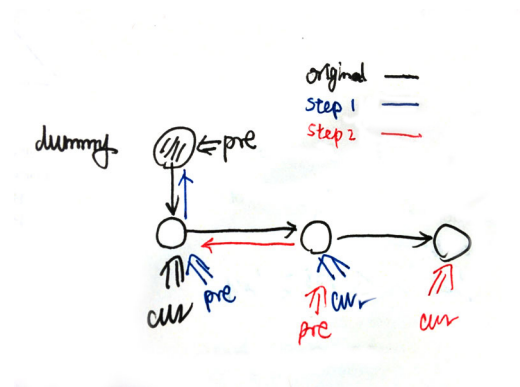 original
Step 1
Step 2
dummy
pre
cur
pre
cur
pre
cur